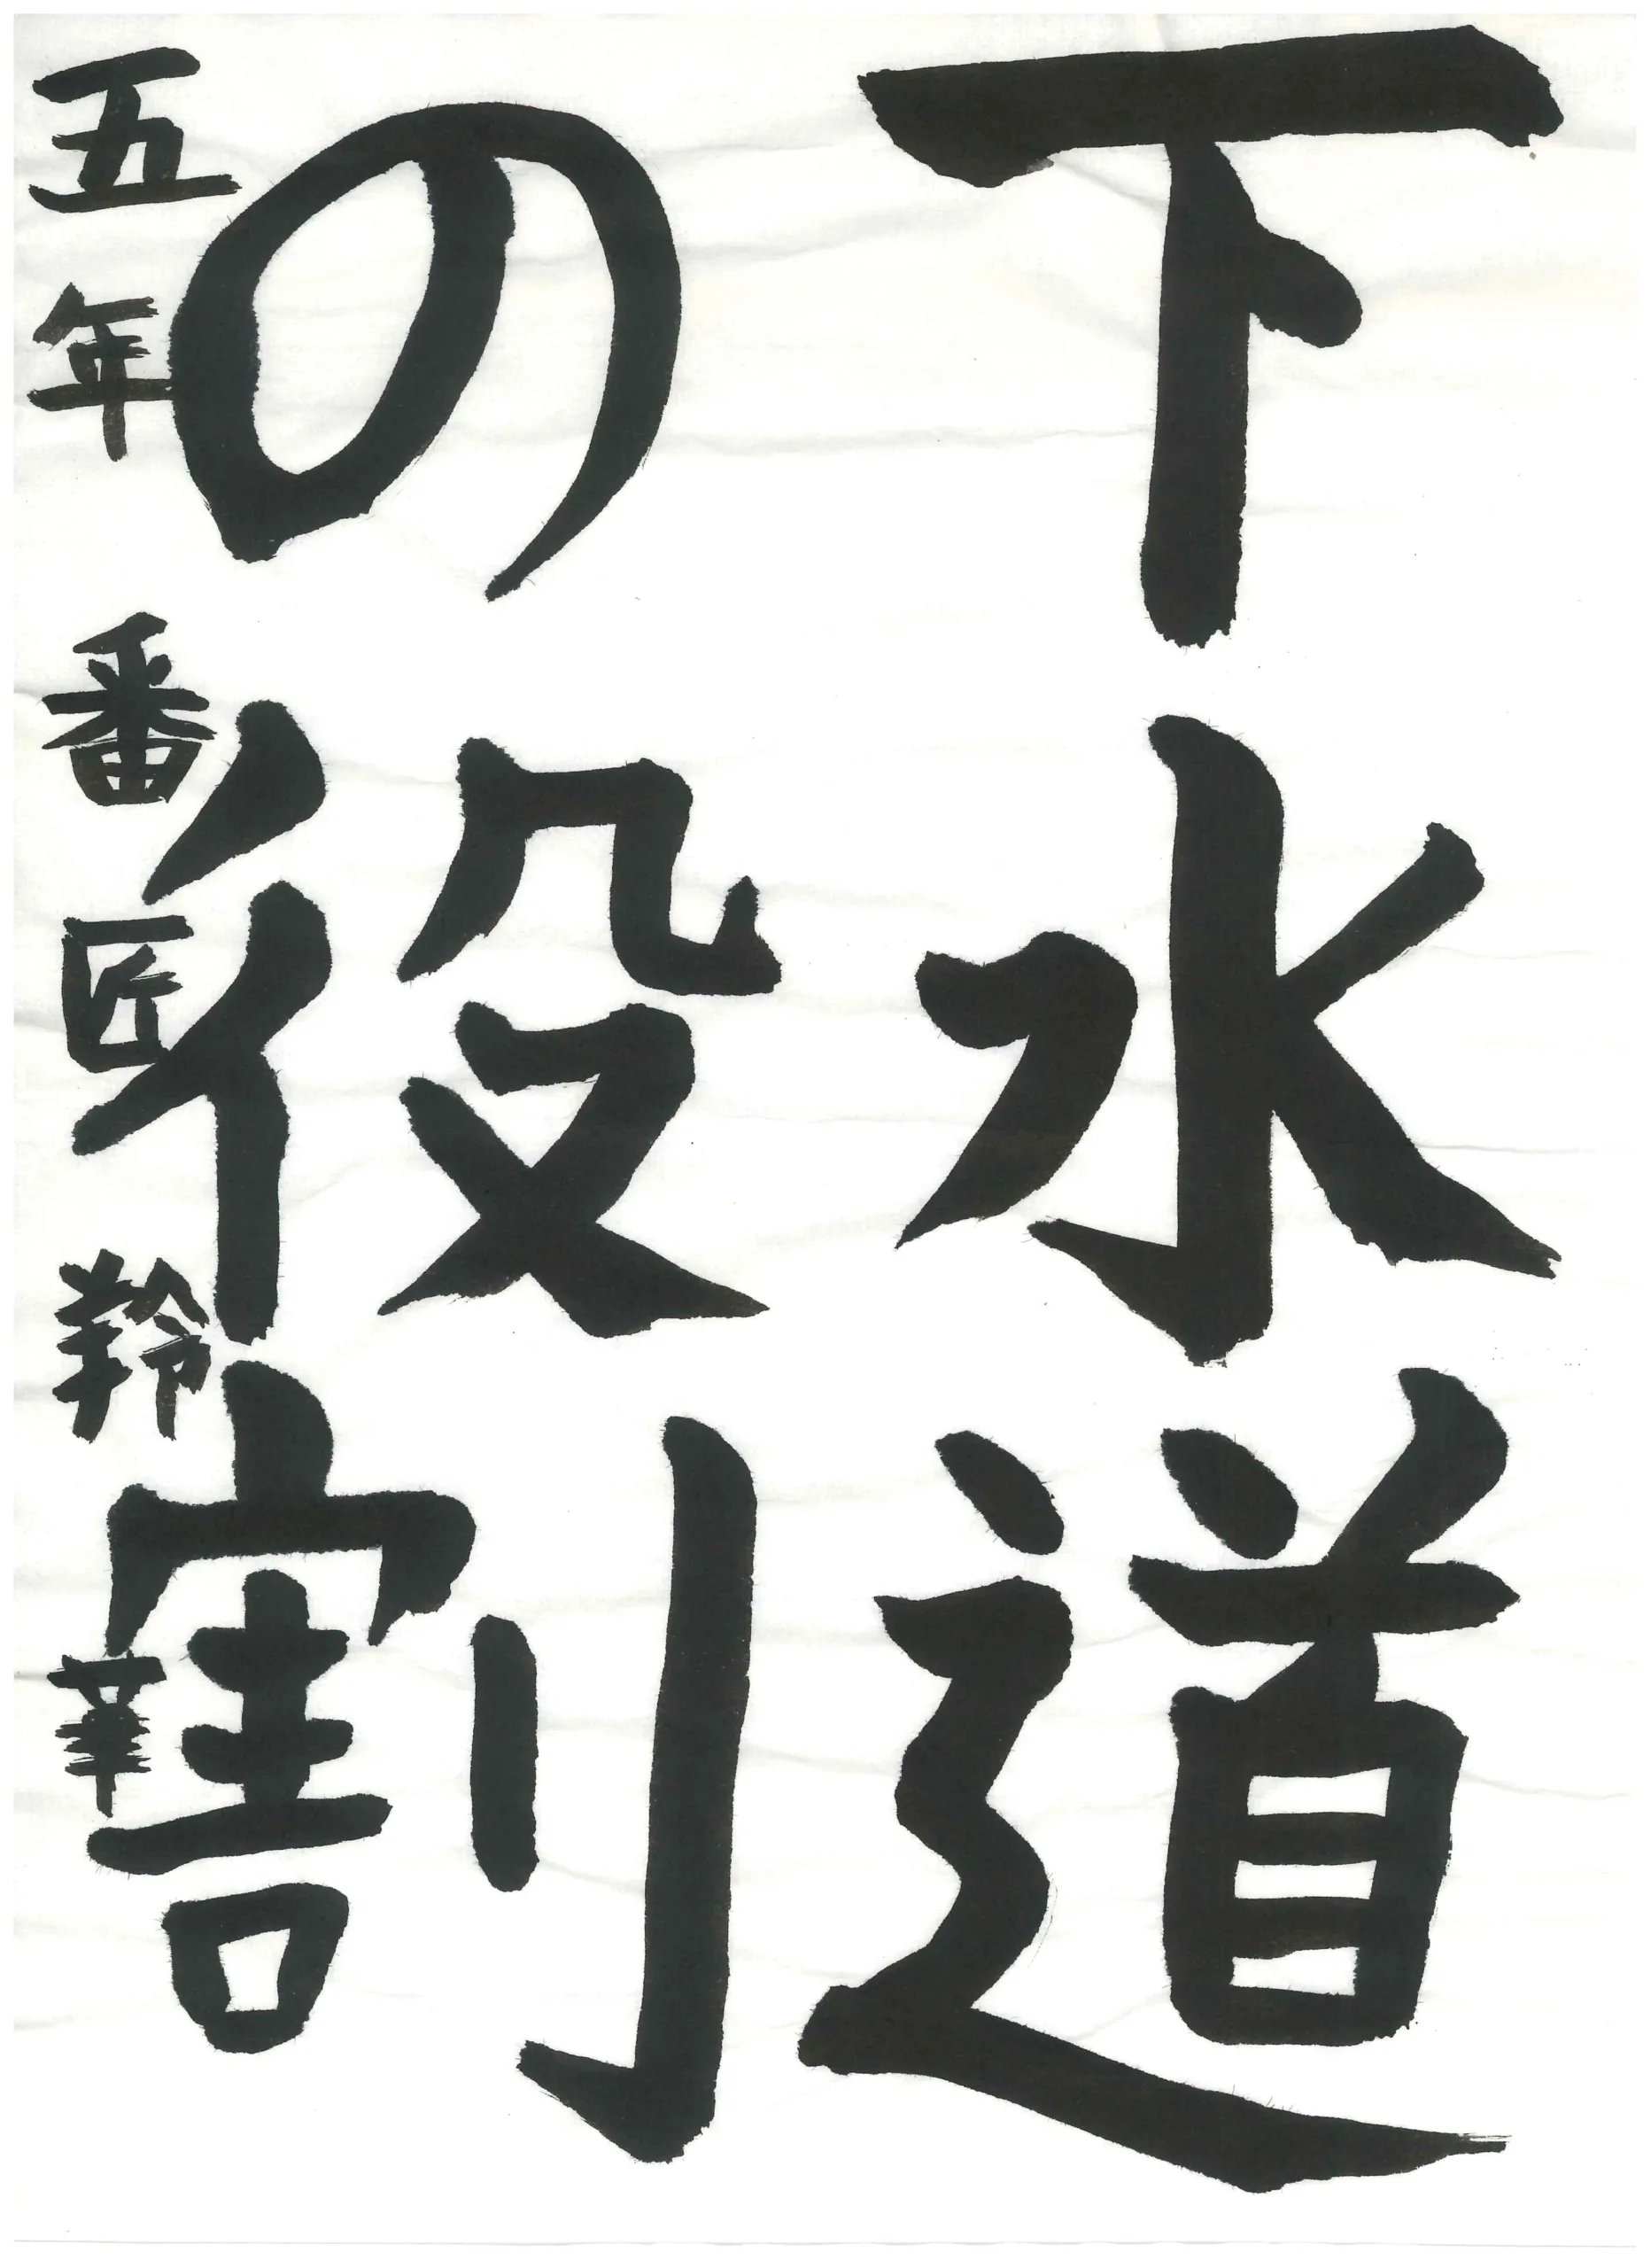 下水道
の役割
五年 番匠 羚華